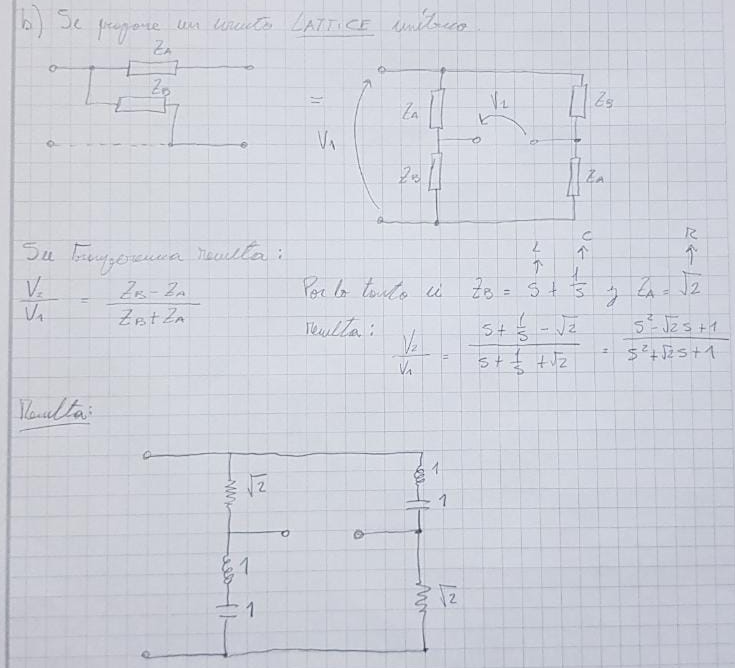 b) Se propone un circuito LATTICE simétrico.
ZA
ZB
=
V1
ZA
V2
ZB
ZB
ZA
Su transferencia resulta:
V2/V1 = (ZB - ZA)/(ZB + ZA)
L C R
Por lo tanto si ZB = S + 1/S y ZA = √2
resulta: V2/V1 = (S + 1/S - √2)/(S + 1/S + √2) = (S² - √2 S + 1)/(S² + √2 S + 1)
Resulta:
√2
1
1
1
1
√2